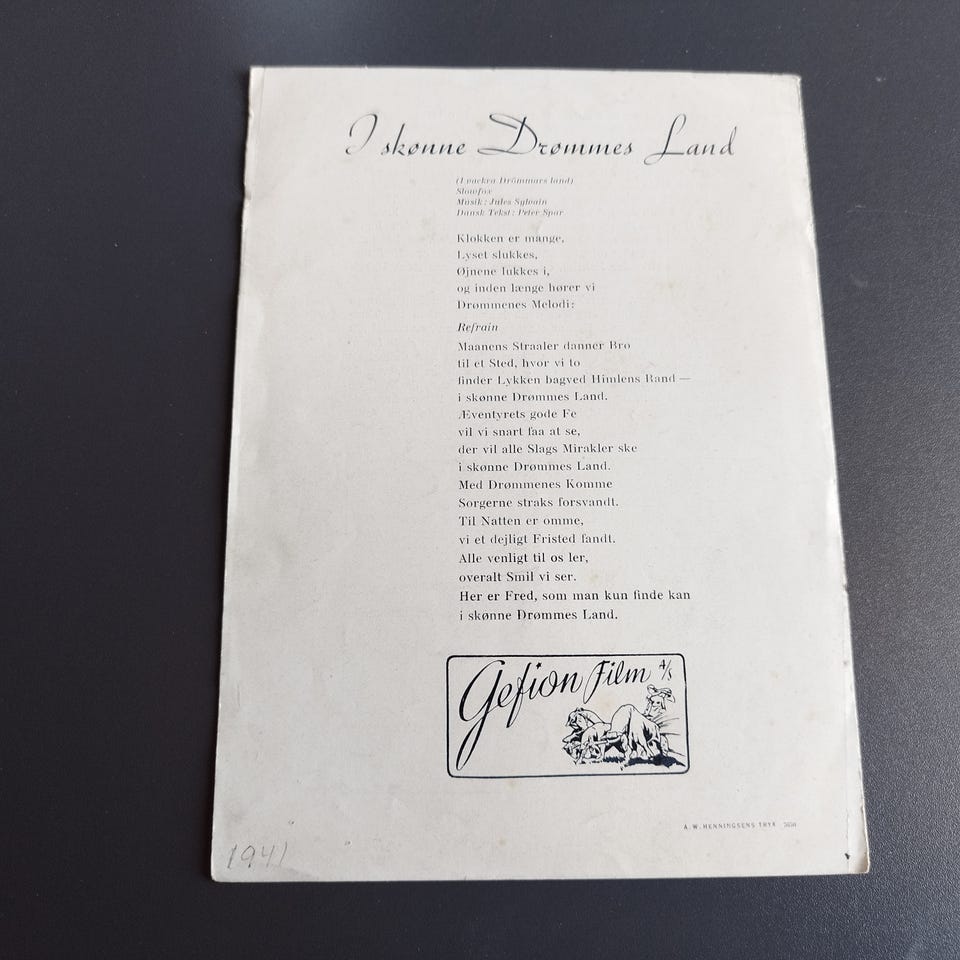 I skønne Drømmes Land
(I vackra Drömmars land)
Slowfox
Musik: Jules Sylvain
Dansk Tekst: Peter Spar
Klokken er mange,
Lyset slukkes,
Øjnene lukkes i,
og inden længe hører vi
Drømmenes Melodi:
Refrain
Maanens Straaler danner Bro
til et Sted, hvor vi to
finder Lykken bagved Himlens Rand —
i skønne Drømmes Land.
Æventyrets gode Fe
vil vi snart faa at se,
der vil alle Slags Mirakler ske
i skønne Drømmes Land.
Med Drømmenes Komme
Sorgerne straks forsvandt.
Til Natten er omme,
vi et dejligt Fristed fandt.
Alle venligt til os ler,
overalt Smil vi ser.
Her er Fred, som man kun finde kan
i skønne Drømmes Land.
Gefion Film A/S
A. W. HENNINGSENS TRYK
1941